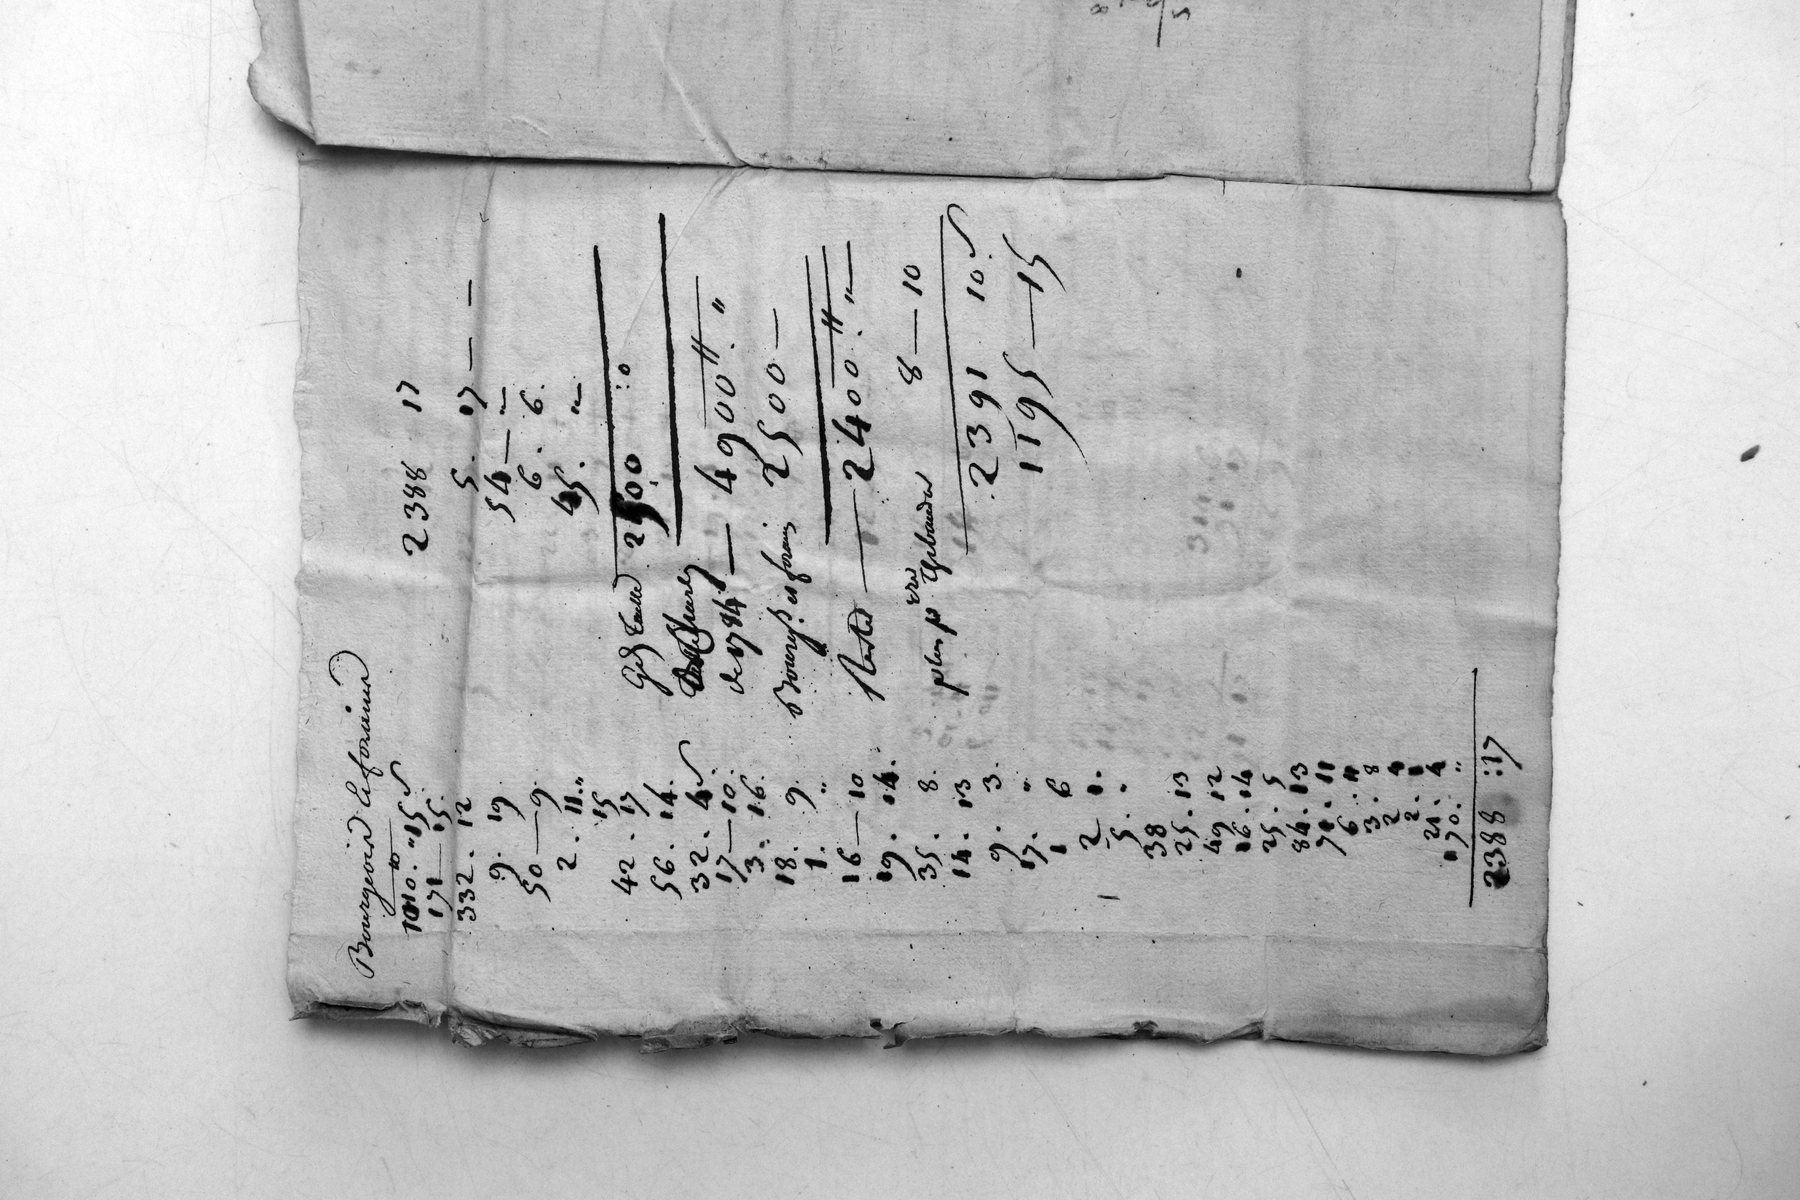 Bourgeois & forains
1010. " 15
171 — 15.
332. 12
9. 19
50 — 9.
2. 11. "
15
42. 17
56. 14.
32. 4
17 — 10.
3. 16.
18. 9.
1. "
16 — 10
19. 14.
35. 8.
14. 13
9. 3.
17. "
1 6
2 1.
5. "
38
25. 13
49 12
16. 14
25. 5
84. 13
71. 11
6. 11
3. 8
2 4
2. 1
21. 4
170. "
2388 : 17
2388 17
5. 17 — —
54 — "
6. 6.
45. "
2500 : 0
de 1784 — 4900 ₶. "
Bourgs. et forains 2500 —
Reste — 2400 ₶. "—
plus pr 8 — 10
2391 10.
1195 — 15